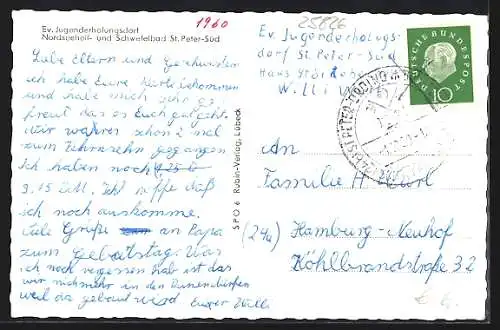 Ev. Jugenderholungsdorf
Nordseeheil- und Schwefelbad St. Peter-Süd
1960
25826
Ev Jugenderholungs-
dorf St. Peter-Süd
Haus
Willi
Liebe Eltern und Geschwister
ich habe Eure Karte bekommen
und habe mich sehr ge-
freut das es Euch gut geht.
Wir waren schon 2 mal
zum gegangen
ich haben noch
9.15 Ich hoffe daß
ich noch auskomme.
Viele Grüße an Papa
zum Geburtstag. Was
ich noch vergessen hab ist das
wir nicht mehr in den Dünen dürfen
weil da gebaut wird Euer Willi
SPO 6 Rubin-Verlag, Lübeck
DEUTSCHE BUNDESPOST
10
An
Familie H
(24a) Hamburg-Neuhof
Köhlbrandstraße 32